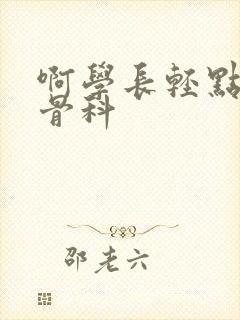 啊學長輕點
骨科
邵老六